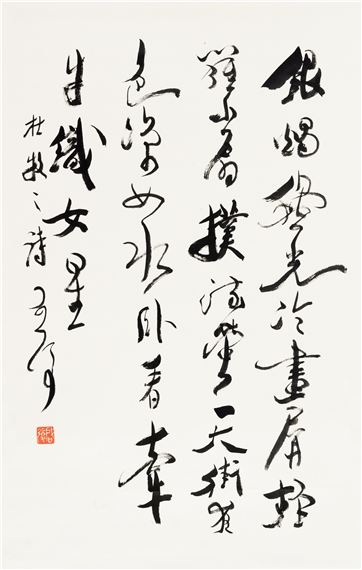 銀燭秋光冷畫屏輕
羅小扇撲流螢天街夜
色涼如水臥看牽
牛織女星
杜牧之詩